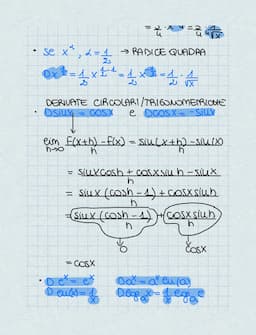 = 2/4 · x = 2/4 · 1/√x
• se x^α, α = 1/2 → RADICE QUADRA
Dx^1/2 = 1/2 x^(1/2-1) = 1/2 x^-1/2 = 1/2 · 1/√x
DERIVATE CIRCOLARI/TRIGONOMETRICHE
D sinx = cosx e D cosx = -sinx
lim h→0 f(x+h)-f(x)/h = sin(x+h)-sin(x)/h
= sinxcosh + cosxsinh - sinx/h
= sinx(cosh-1) + cosxsinh/h
= sinx(cosh-1)/h + cosxsinh/h
0 cosx
= cosx
• D e^x = e^x D a^x = a^x ln(a)
D ln(x) = 1/x D log_a x = 1/x log_a e